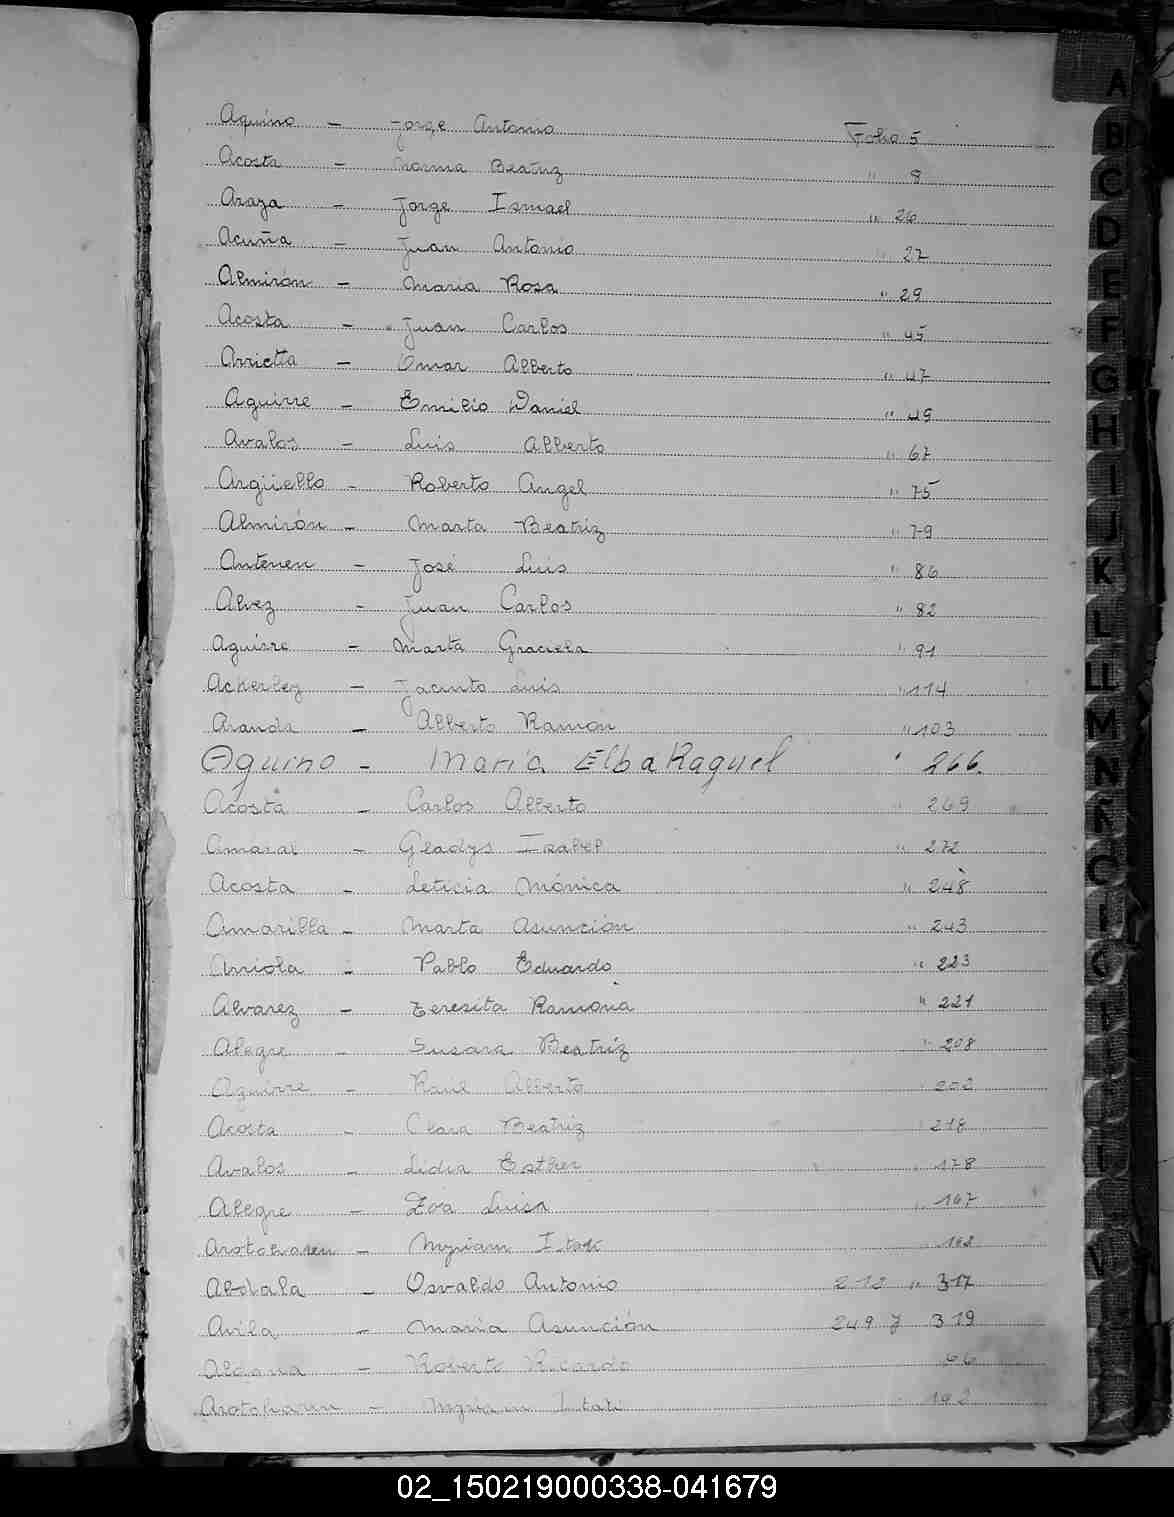 Aquino - Jorge Antonio Folio 5
Acosta - Norma Beatriz " 8
Araya - Jorge Ismael " 26
Acuña - Juan Antonio " 27
Almirón - María Rosa " 29
Acosta - Juan Carlos " 45
Arrietta - Omar Alberto " 47
Aguirre - Emilio Daniel " 49
Avalos - Luis Alberto " 67
Argüello - Roberto Angel " 75
Almirón - Marta Beatriz " 79
Antenen - José Luis " 86
Alvez - Juan Carlos " 82
Aguirre - Marta Graciela " 91
Acherley - Jacinto Luis " 114
Aranda - Alberto Ramón " 103
Aquino - María Elba Raquel " 266.
Acosta - Carlos Alberto " 269
Amaral - Gladys Isabel " 272
Acosta - Leticia Mónica " 248
Amarilla - Marta Asunción " 243
Arriola - Pablo Eduardo " 223
Alvarez - Teresita Ramona " 221
Alegre - Susana Beatriz " 208
Aguirre - Raúl Alberto " 202
Acosta - Clara Beatriz " 218
Avalos - Lidia Esther " 178
Alegre - Zoa Luisa " 167
Arotcharen - Myriam Itatí 162
Abdala - Osvaldo Antonio 212 " 317
Avila - María Asunción 249 y 319
Roberto Ricardo 66
Arotcharen - Myriam Itatí 162
A
B
C
D
E
F
G
H
I
J
K
L
M
N
02_150219000338-041679